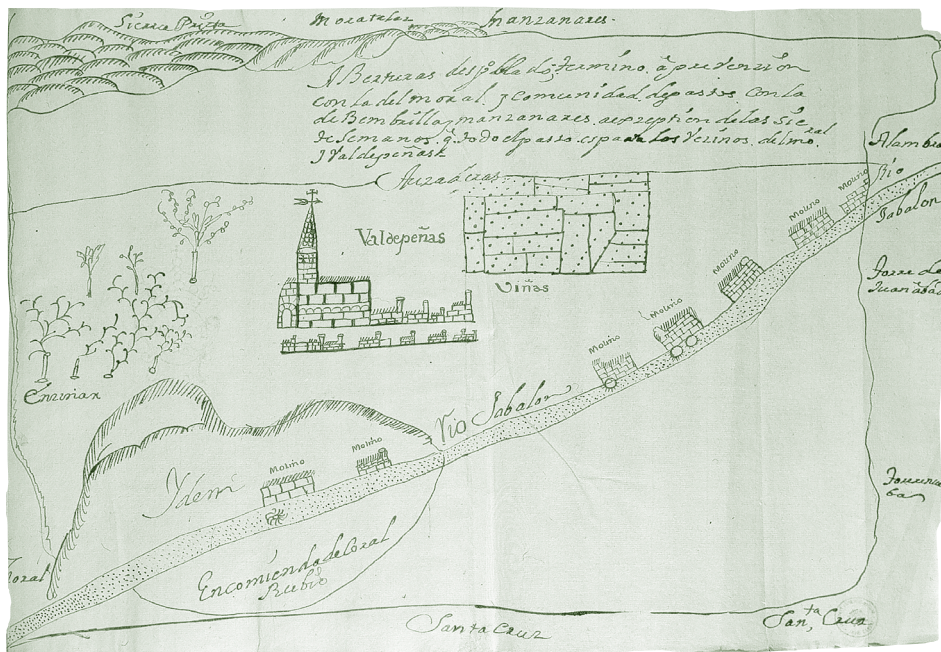 Sierra Prieta
Moratalaz
manzanares.
A Berturas despobla do, termino. a prevenzion
con la del moral. y comunidad. de pastos. Con la
de Bembrilla y manzanares. a exzeption de las Sie
de Semanos. q. todo el pasto. es para los Vezinos. del mo.ral
y Valdepeñas
Alambra
Aczaduras
Rio
Jabalon
Molino
Molino
Valdepeñas
Molino
Viñas
Torre de
Juan abad
Molino
Molino
Enzinar
Rio Jabalon
Molino
Molino
Ydem
Encomienda de Coral
Rubio
Santa Cruz
San,ta Cruz